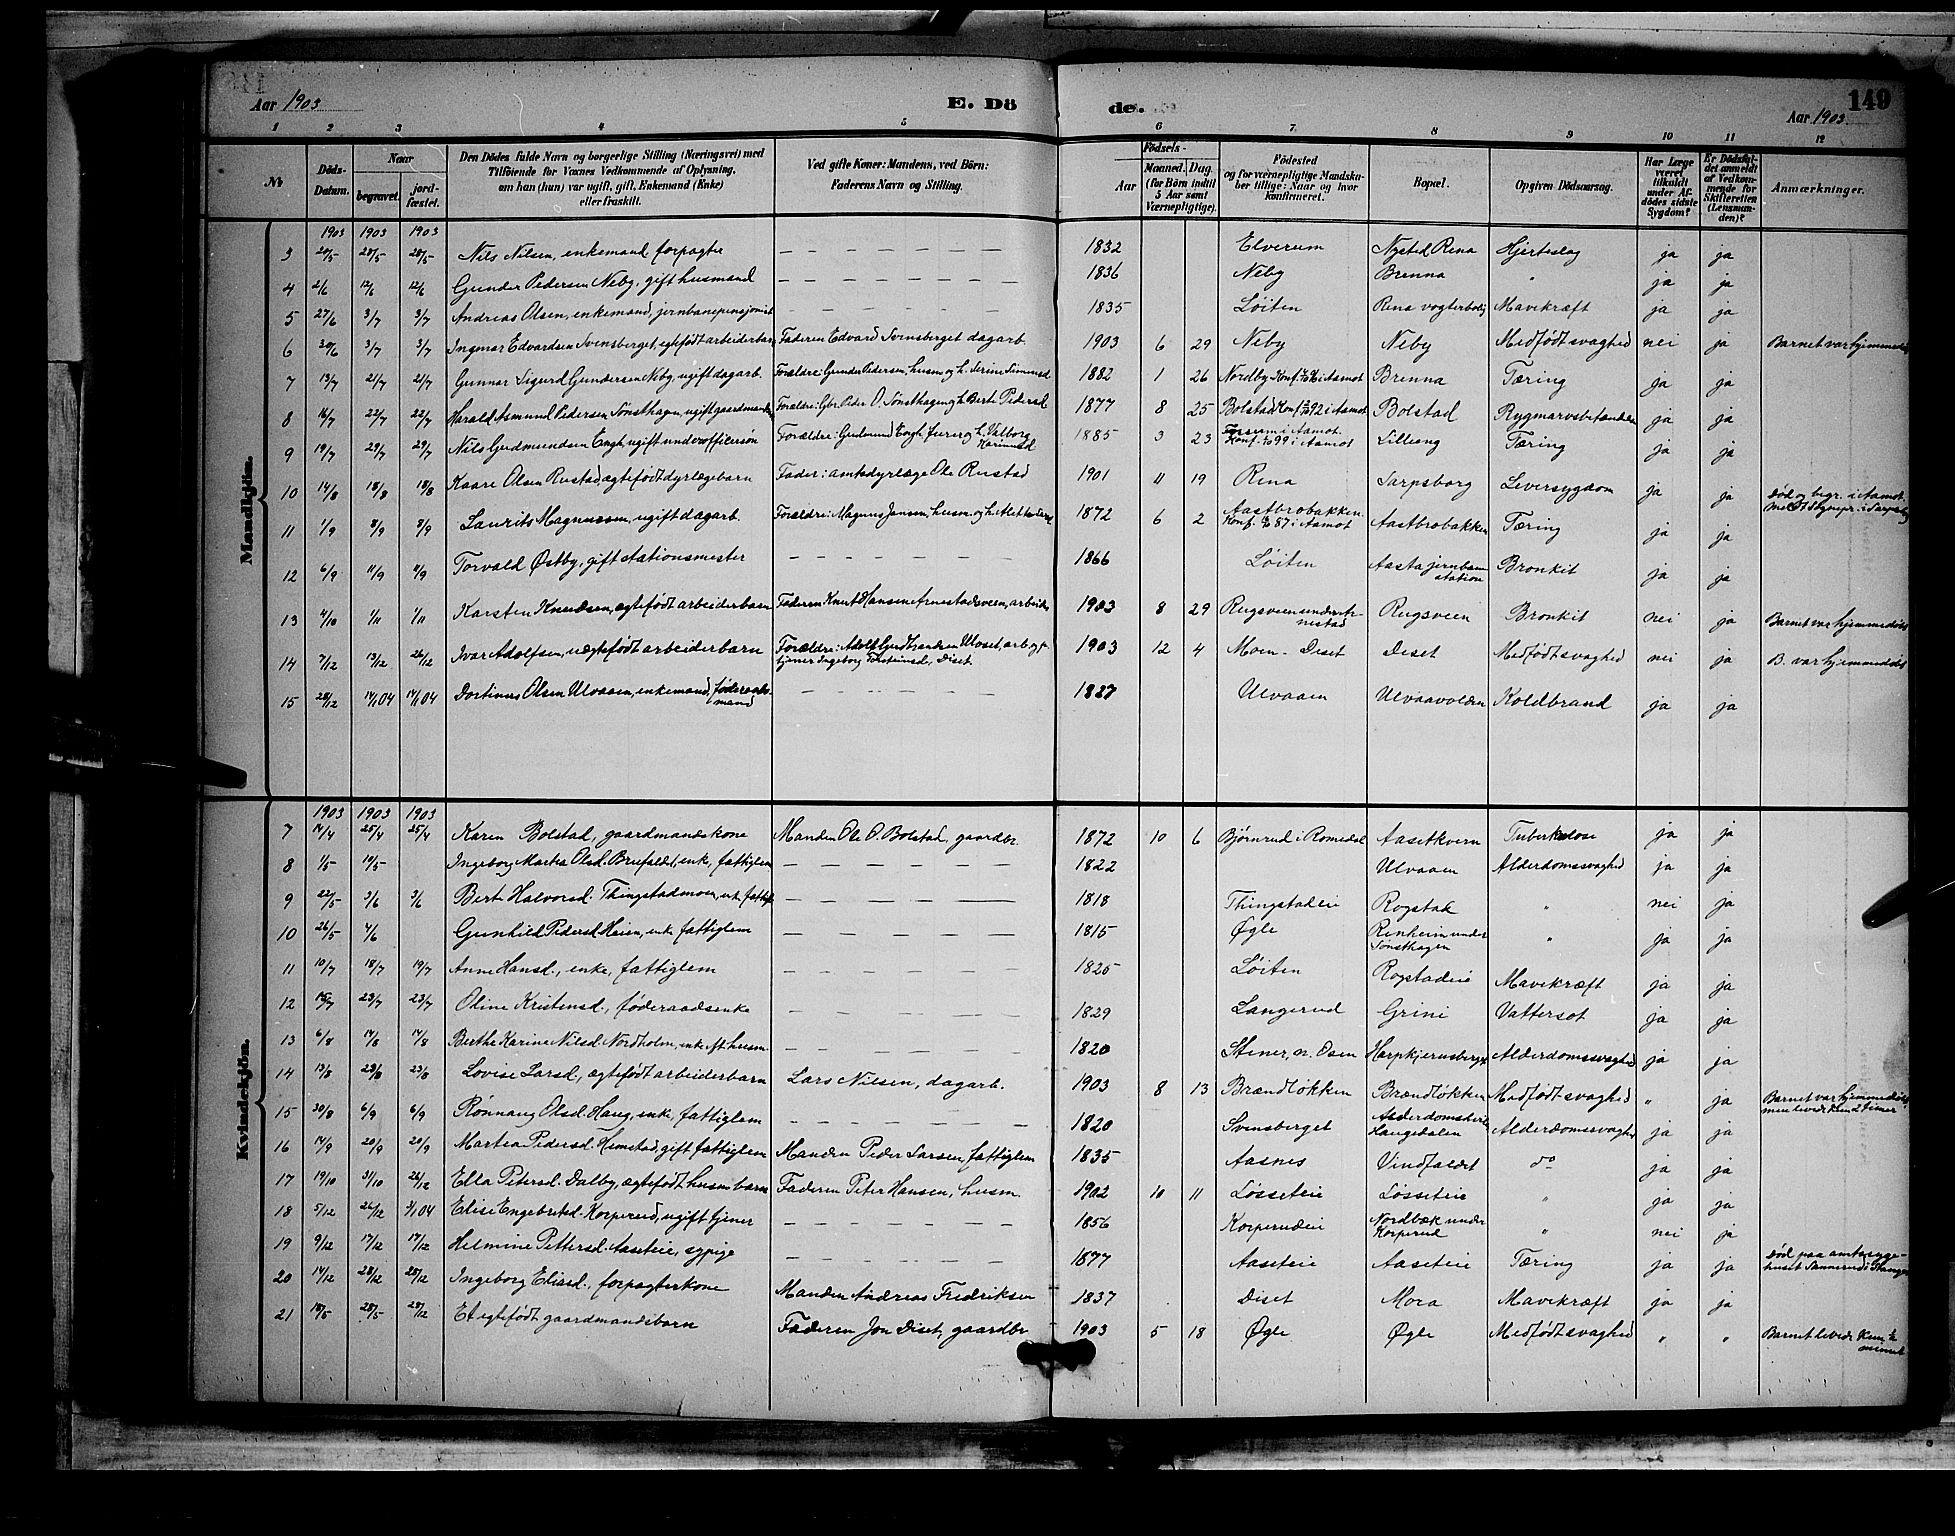 Aar 1903
E. Dö
de.
149
Aar 1903
1 2 3 4 5 6 7. 8 9 10 11 12
№
Döds-Datum.
Naar
begravet.
jord-fæstet.
Den Dödes fulde Navn og borgerlige Stilling (Næringsvei) med
Tilföiende for Voxnes Vedkommende af Oplysning,
om han (hun) var ugift, gift, Enkemand (Enke)
eller fraskilt.
Ved gifte Koner: Mandens, ved Börn:
Faderens Navn og Stilling.
Födsels-
Aar
Maaned. Dag.
(for Börn indtil
5 Aar samt
Værnepligtige).
Födested
og for værnepligtige Mandska-
ber tillige: Naar og hvor
konfirmeret.
Bopæl.
Opgiven Dödsaarsag.
Har Læge
været
tilkaldt
under Af-
dödes sidste
Sygdom?
Er Dödsfal-
det anmeldt
af Vedkom-
mende for
Skifteretten
(Lensman-
den)?
Anmærkninger.
Mandkjön.
1903 1903 1903
3 20/5 28/5 28/5 Nils Nilsen, enkemand, forpagter — 1832 Elverum Nysted Rena Hjerteslag ja ja
4 2/6 12/6 12/6 Gunder Pedersen Neby, gift husmand — 1836 Neby Brenna " ja ja
5 27/6 3/7 3/7 Andreas Olsen, enkemand, jernbanepensjonist — 1835 Løiten Rena vogterbolig Mavekræft ja ja
6 30/6 3/7 3/7 Ingmar Edvardsen Svensberget, egtefødt arbeiderbarn Faderen Edvard Svensberget dagarb. 1903 6 29 Neby Neby Medfødt svaghed nei ja Barnet var hjemmedøbt
7 13/7 21/7 21/7 Gunnar Sigurd Gundersen Neby, ugift dagarb. Forældre: Gunder Pedersen, husm. og h. Serine Simensd 1882 1 26 Nordby Konf. i Aamot Brenna Tæring ja ja
8 16/7 22/7 22/7 Harald Asmund Pedersen Sønsthagen, ugift gaardmandssøn Forældre: Gbr. Peder O. Sønsthagen og h. Berte Pedersd 1877 8 25 Bolstad Konf. 92 i Aamot Bolstad Rygmarvsbetændelse ja ja
9 19/7 29/7 29/7 Nils Gudmundsen Engh, ugift underofficersøn Forældre: Gudmund Engh, furer og h. Valborg Karinusd 1885 3 23 i Aamot Konf. 99 i Aamot Lilleeng Tæring ja ja
10 14/8 18/8 18/8 Kaare Olsen Rustad ægtefødt dyrlægebarn Fader: amtsdyrlæge Ole Rustad 1901 11 19 Rena Sarpsborg Leversygdom ja ja Død og begr. i Aamot
11 1/9 8/9 8/9 Laurits Magnussen, ugift dagarb. Forældre: Magnus Jensen, husm. og h. 1872 6 2 Aastbrobakken. Konf. 87 i Aamot Aastbrobakken Tæring ja ja
12 6/9 11/9 11/9 Torvald Østby, gift stationsmester — 1866 Løiten Aasta jernbanestation Bronkit ja ja
13 4/10 1/11 1/11 Karsten Knudsen, ægtefødt arbeiderbarn Faderen Knut Hansen Arnestadsveen, arbeider 1903 8 29 Rugsveen under Arnestad Rugsveen Bronkit nei ja Barnet var hjemmedøbt
14 7/12 13/12 26/12 Ivar Adolfsen, uægtefødt arbeiderbarn Forældre: Adolf Gudbrandsen Ulvset, arb. og tjener Ingeborg Torsteinsd, Diset 1903 12 4 Moen - Diset Diset Medfødt svaghed nei ja B. var hjemmedøbt
15 28/12 14/1 04 14/1 04 Dortinus Olsen Ulvaaen, enkemand, føderaadsmand — 1827 Ulvaaen Ulvaavolden Koldbrand ja ja
Kvindekjön.
1903 1903 1903
7 14/4 25/4 25/4 Karen Bolstad, gaardmandskone Manden Ole O. Bolstad, gaardbr. 1872 10 6 Bjørnrud i Romedal Aasetkvern Tuberkulose ja ja
8 1/5 10/5 Ingeborg Martea Olsd. Brufaldt, enke, fattiglem — 1822 Ulvaaen Alderdomssvaghed ja ja
9 22/5 3/6 3/6 Berte Halvorsd. Thingstadmoen, enke fattigl. — 1818 Thingstadeie Rogstad " nei ja
10 26/5 4/6 Gunhild Pedersd. Haien, enke, fattiglem — 1815 Øgle Renheim under Sønsthagen " ja ja
11 10/7 18/7 19/7 Anne Hansd., enke, fattiglem — 1825 Løiten Rogstadeie Mavekræft ja ja
12 15/7 23/7 23/7 Oline Kristensd., føderaadsenke 1829 Langerud Grini Vattersot ja ja
13 6/8 14/8 14/8 Berthe Karine Nilsd. Nordholm, enke eft. husm. — 1820 Stener, n. Osen Harpkjernsberget Alderdomssvaghed ja ja
14 13/8 23/8 23/8 Lovise Larsd., ægtefødt arbeiderbarn Lars Nilsen, dagarb. 1903 8 13 Brændløkken Brændløkken Medfødt svaghed " ja Barnet var hjemmedøbt men levede kun 2 timer
15 30/8 6/9 6/9 Rønnaug Olsd. Haug, enke, fattiglem — 1820 Svensberget Alderdomshjem Haugedalen Alderdomssvaghed ja ja
16 14/9 20/9 20/9 Martea Pedersd. Hemstad, gift fattiglem Manden Peder Larsen, fattiglem 1835 Aasnes Vindfaldet do ja ja
17 19/10 31/10 26/12 Ella Petersd. Dalby, ægtefødt husm. barn Faderen Peter Hansen, husm. 1902 10 11 Løsseteie Løsseteie " ja ja
18 5/12 26/12 3/1 04 Elise Engebretsd. Korperud, ugift tjener — 1856 Korperudeie Nordbæk under Korperud " nei ja
19 9/12 17/12 17/12 Helmine Pettersd. Aaseteie, sypige — 1877 Aaseteie Aaseteie Tæring ja ja Død paa amtssygehuset Sannerud i Stange
20 14/12 28/12 28/12 Ingeborg Eliasd., forpagterkone Manden Andreas Fredriksen 1837 Diset Mora Mavekræft ja ja
21 18/5 28/5 28/12 Et egtefødt gaardmandsbarn Faderen Jon Diset, gaardbr 1903 5 18 Øgle Øgle Medfødt svaghed " " Barnet levede kun ½ minut